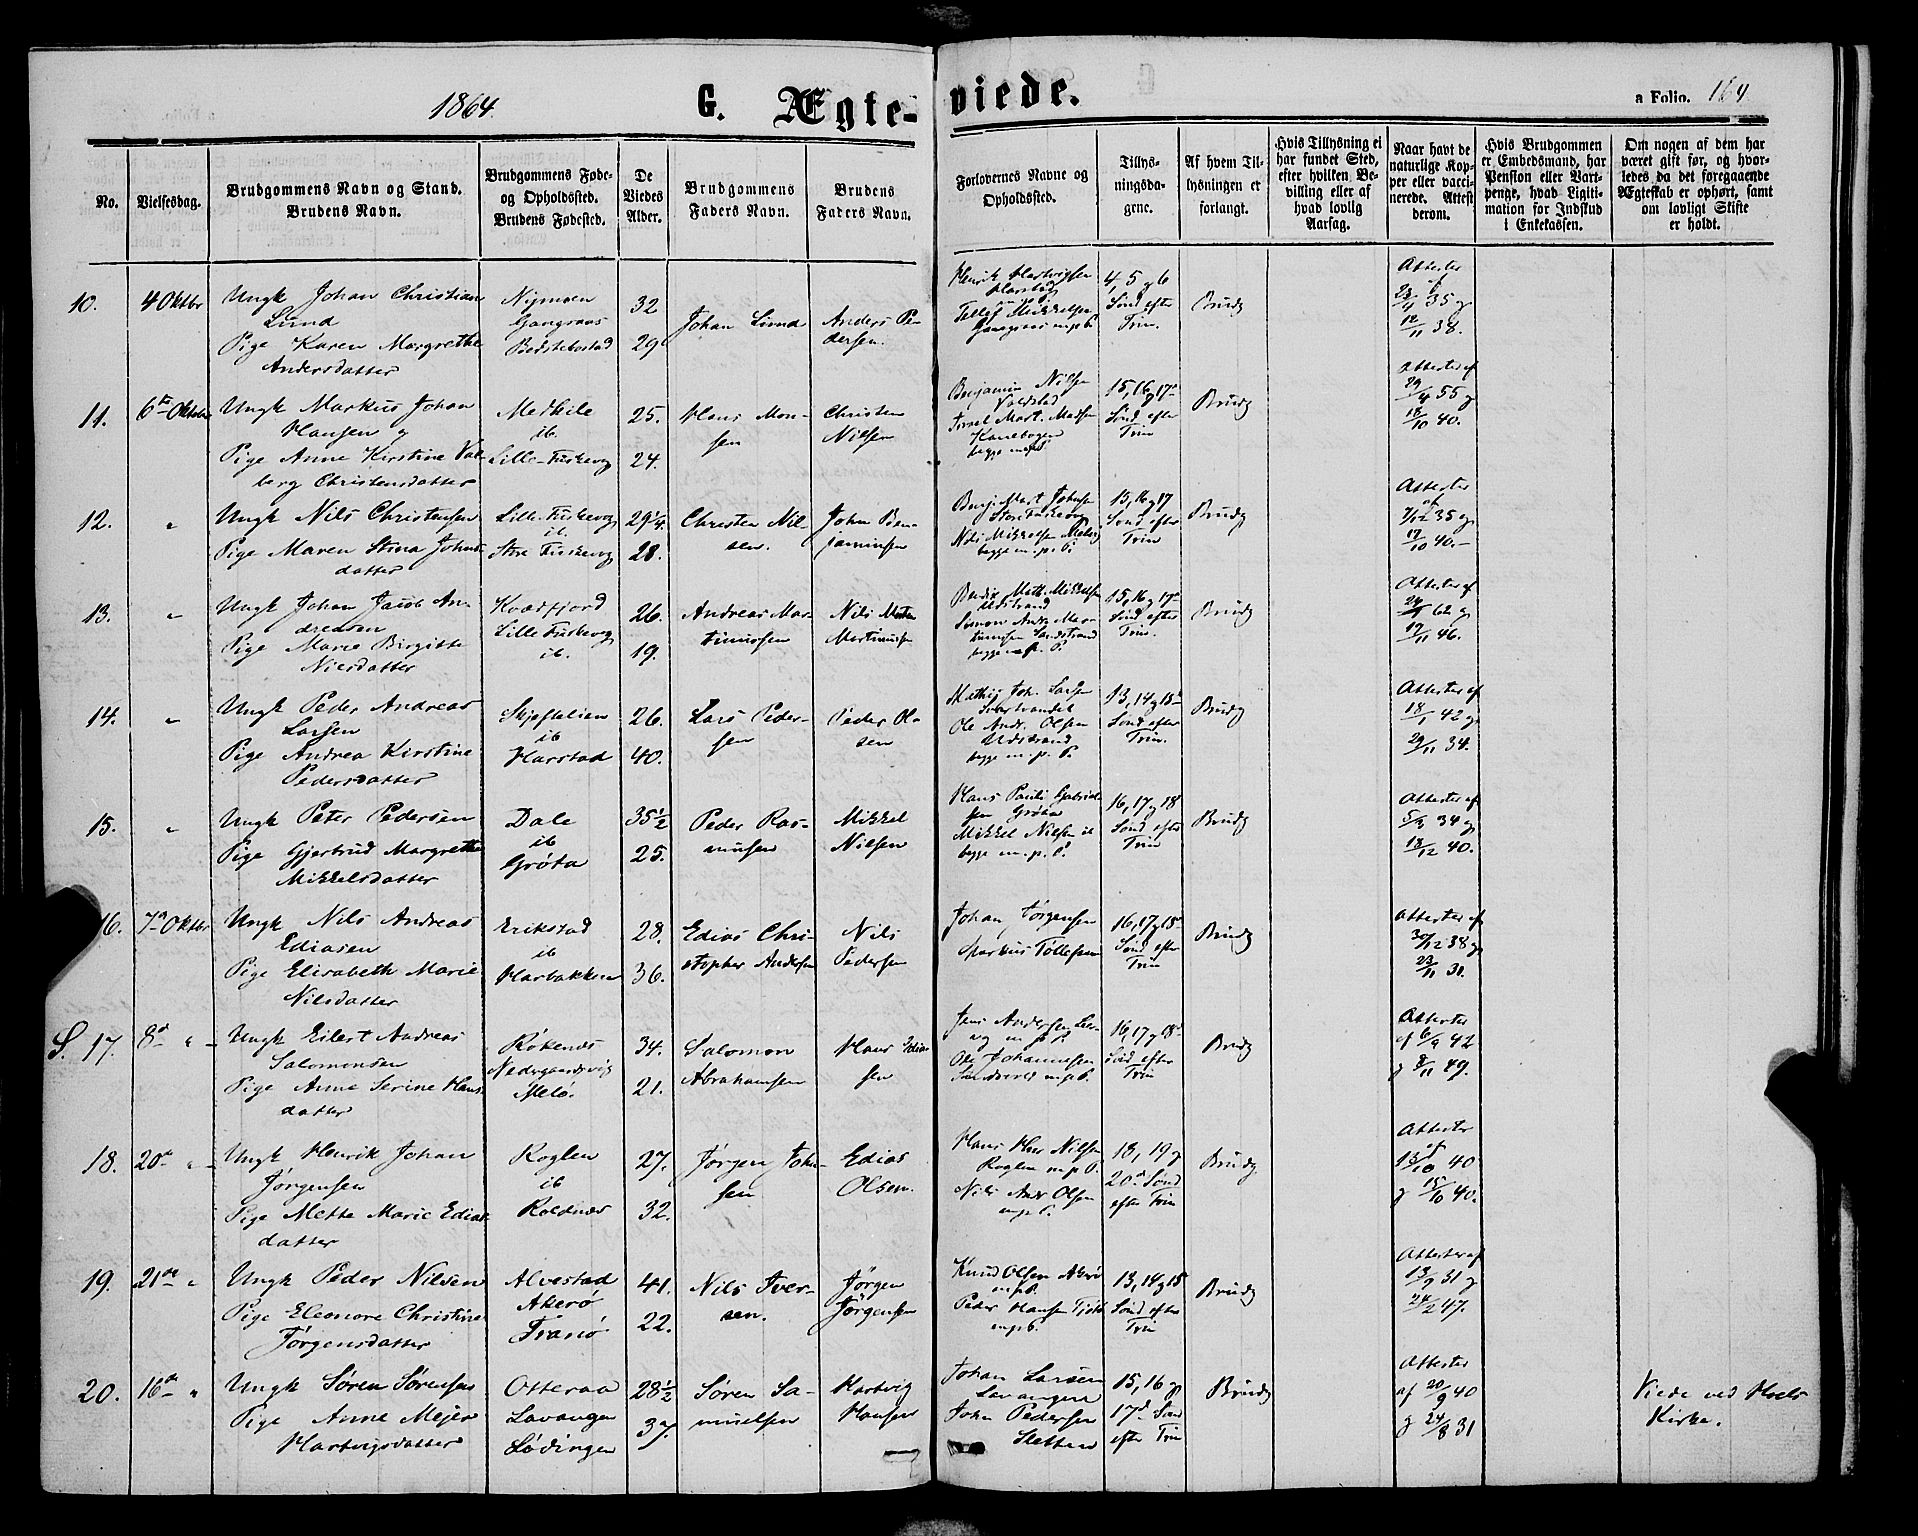 1864.
G. Ægte-viede.
a Folio. 164
No.
Vielsesdag.
Brudgommens Navn og Stand.
Brudens Navn.
Brudgommens Føde-
og Opholdssted.
Brudens Fødested.
De
Viedes
Alder.
Brudgommens
Faders Navn.
Brudens
Faders Navn.
Forlovernes Navne og
Opholdssted.
Tillys-
ningsda-
gene.
Af hvem Til-
lysningen er
forlangt.
Hvis Tillysning ei
har fundet Sted,
efter hvilken Be-
villing eller af
hvad lovlig
Aarsag.
Naar havt de
naturlige Kop-
per eller vacci-
nerede. Attest
derom.
Hvis Brudgommen
er Embedsmand, har
Pension eller Vart-
penge, hvad Ligiti-
mation for Indskud
i Enkekassen.
Om nogen af dem har
været gift før, og hvor-
ledes da det foregaaende
Ægteskab er ophørt, samt
om lovligt Skifte
er holdt.
10. 4 Oktbr
Ungk Johan Christian
Lund
Pige Karen Margrethe
Andersdatter
Nymoen
Gangsaas
32
29
Johan Lund
Anders Pe-
dersen.
Henrik Hartvigsen
Harstad
4, 5 og 6
Sønd efter
Trin.
Brudg
Attester
af
35 og
12/11 38.
11. 6te Oktbr
Ungk Markus Johan
Hansen og
Pige Anne Kirstine Val-
borg Christensdatter
Medkile
ib.
Lille-Fuskevog
25.
24.
Hans Mon-
sen
Christen
Nilsen
Benjamin Nilsen
Mart. Madsen
Kanebogen
begge m.p.P.
15, 16, 17de
Sønd efter
Trin
Brudg
Attester af
29/4 55 og
18/10 40.
12. "
Ungk Nils Christensen
Pige Maren Stina Johns-
datter
Lille-Fuskevog
ib.
Store Fuskevog
29 1/4
28.
Christen Nil-
sen.
John Ben-
jaminsen
Benj. Mart Johnsen
Store Fuskevog
Nils Mikkelsen
begge m.p.P.
15, 16 og 17
Sønd efter
Trin
Brudg
Attester
af
7/12 35 og
17/10 40.-
13. "
Ungk Johan Jacob An-
dreasen
Pige Marie Birgitte
Nilsdatter
Kvædfjord
Lille Fuskevog
ib.
26.
19.
Andreas Mar-
tinussen
Nils
Martinussen
Math. Mikkelsen
Simon Andr. Mar-
tinussen Sandstrand
begge m.p.P.
15, 16 og 17de
Sønd efter
Trin.
Brudg
Attester af
62 og
17/11 46.
14. "
Ungk Peder Andreas
Larsen
Pige Andrea Kirstine
Pedersdatter
ib
Harstad
26.
40.
Lars Peder-
sen
Peder Ol-
sen
Mathis Joh. Larsen
Ole Andr. Olsen
begge m.p.P.
13, 14 og 15de
Sønd efter
Trin.
Brudg
Attester af
18/1 42 og
29/11 34.
15. "
Ungk Peter Pedersen
Pige Gjertrud Margrethe
Mikkelsdatter
Dale
ib
Grøta
35 1/2
25.
Peder Ras-
mussen
Mikkel
Nilsen
Hans Pauli Gabriel-
sen Grøta
Mikkel Nilsen ib
begge m.p.P.
16, 17 og 18
Sønd efter
Trin
Brudg
Attester af
34 og
18/12 40.
16. 7de Oktbr
Ungk Nils Andreas
Ediasen
Pige Elisabeth Marie
Nilsdatter
Erikstad
ib
Harbakken
28.
36.
Edias Chri-
stopher Andersen
Nils
Pedersen
Johan Jørgensen
Markus Tollefsen
16, 17 og 18de
Sønd efter
Trin
Brudg
Attester af
30/12 38 og
23/11 31.
S. 17. 8de "
Ungk Eilert Andreas
Salomonsen
Pige Anne Serine Hans-
datter
Røkenes
Nedergaardsvig
Melø.
34.
21.
Salomon
Abrahamsen
Hans Edias-
sen
Jens Andersen
m.p.P.
Ole Johannesen
m.p.P.
16, 17 og 18de
Sønd efter
Trin
Brudg
Attester
af 6/9 42
og 8/11 49.
18. 20de "
Ungk Henrik Johan
Jørgensen
Pige Mette Marie Edias-
datter
Roglen
ib
Roldnæs
27.
32.
Jørgen John-
sen
Edias
Olsen.
Hans Nilsen
Roglen m.p.P.
Nils Andr Olsen
m.p.P.
18, 19 og
20de Sønd
efter Trin
Brudg
Attester
af
13/10 40
og 15/10 40.
19. 21de "
Ungk Peder Nilsen
Pige Eleonore Christine
Jørgensdatter
Alvestad
Akerø
Tranø
41.
22.
Nils Iver-
sen.
Jørgen
Jørgensen
Knud Olsen Akerø
m.p.P.
Peder Hansen
m.p.P.
13, 14 og 15
Sønd efter
Trin
Brudg
Attester af
13/9 31 og
24/2 47.
20. 16de "
Ungk Søren Sørensen
Pige Anne Mejer
Hartvigsdatter
Otteraa
Lavangen
Lødingen
28 1/2
37.
Søren Sa-
muelsen
Hartvig
Hansen
Johan Larsen
Levangen
John Pedersen
Sletten
15, 16 og
17de Sønd
efter Trin
Brudg
Attester
af 20/9 40
og 24/8 31
Viede ved Hols
Kirke.